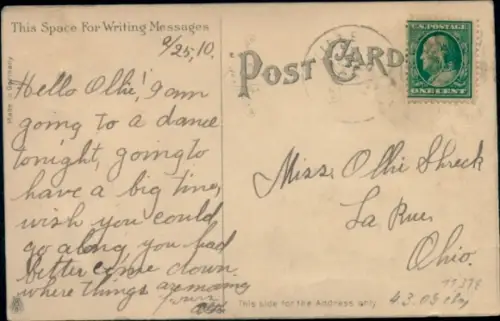 This Space For Writing Messages
9/25,10.
Made in Germany
Hello Ollie! I am
going to a dance
tonight, going to
have a big time,
wish you could
go along you had
better come down
where things are
POST CARD
U.S. POSTAGE
ONE CENT
Miss Ollie Shreck
La Rue,
Ohio.
This side for the Address only.